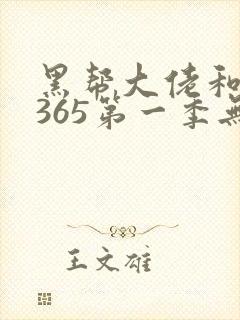 黑帮大佬和
365第一季無
王文雄